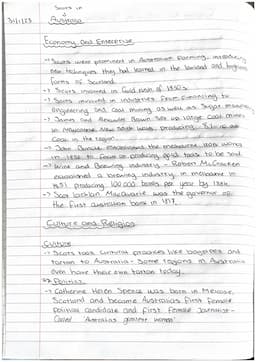 Scots in
31/1/23 Australia
Economy and Enterprise
-> Scots were prominent in Australian farming, introducing
new techniques they had learned in the lowland and highland
farms of Scotland
-> Scots involved in Gold rush of 1850s
-> Scots involved in industries from financing to
engineering and coal mining as well as sugar
-> James and Alexander Brown set up large coal mines
in New South Wales, producing
coal in the region.
-> John Dunn established the melbourne iron works
in 18 to focus on producing gold tools to be sold
-> Wine and Brewing industry - Robert McCracken
established a brewing industry in melbourne in
1851 producing 100,000 barrels per year by 1884.
-> Scot Lachlan MacQuarie was the governor of
the first australian bank in 1817.
Culture and Religion
Culture
-> Scots took cultural practices like bagpipes and
tartan to Australia - Some regions in Australia
even have their own tartan today.
-> Politics:
-> Catherine Helen Spence was born in Melrose,
Scotland and became Australia's first female
political candidate and first female journalist -
Called 'Australia's greatest woman'